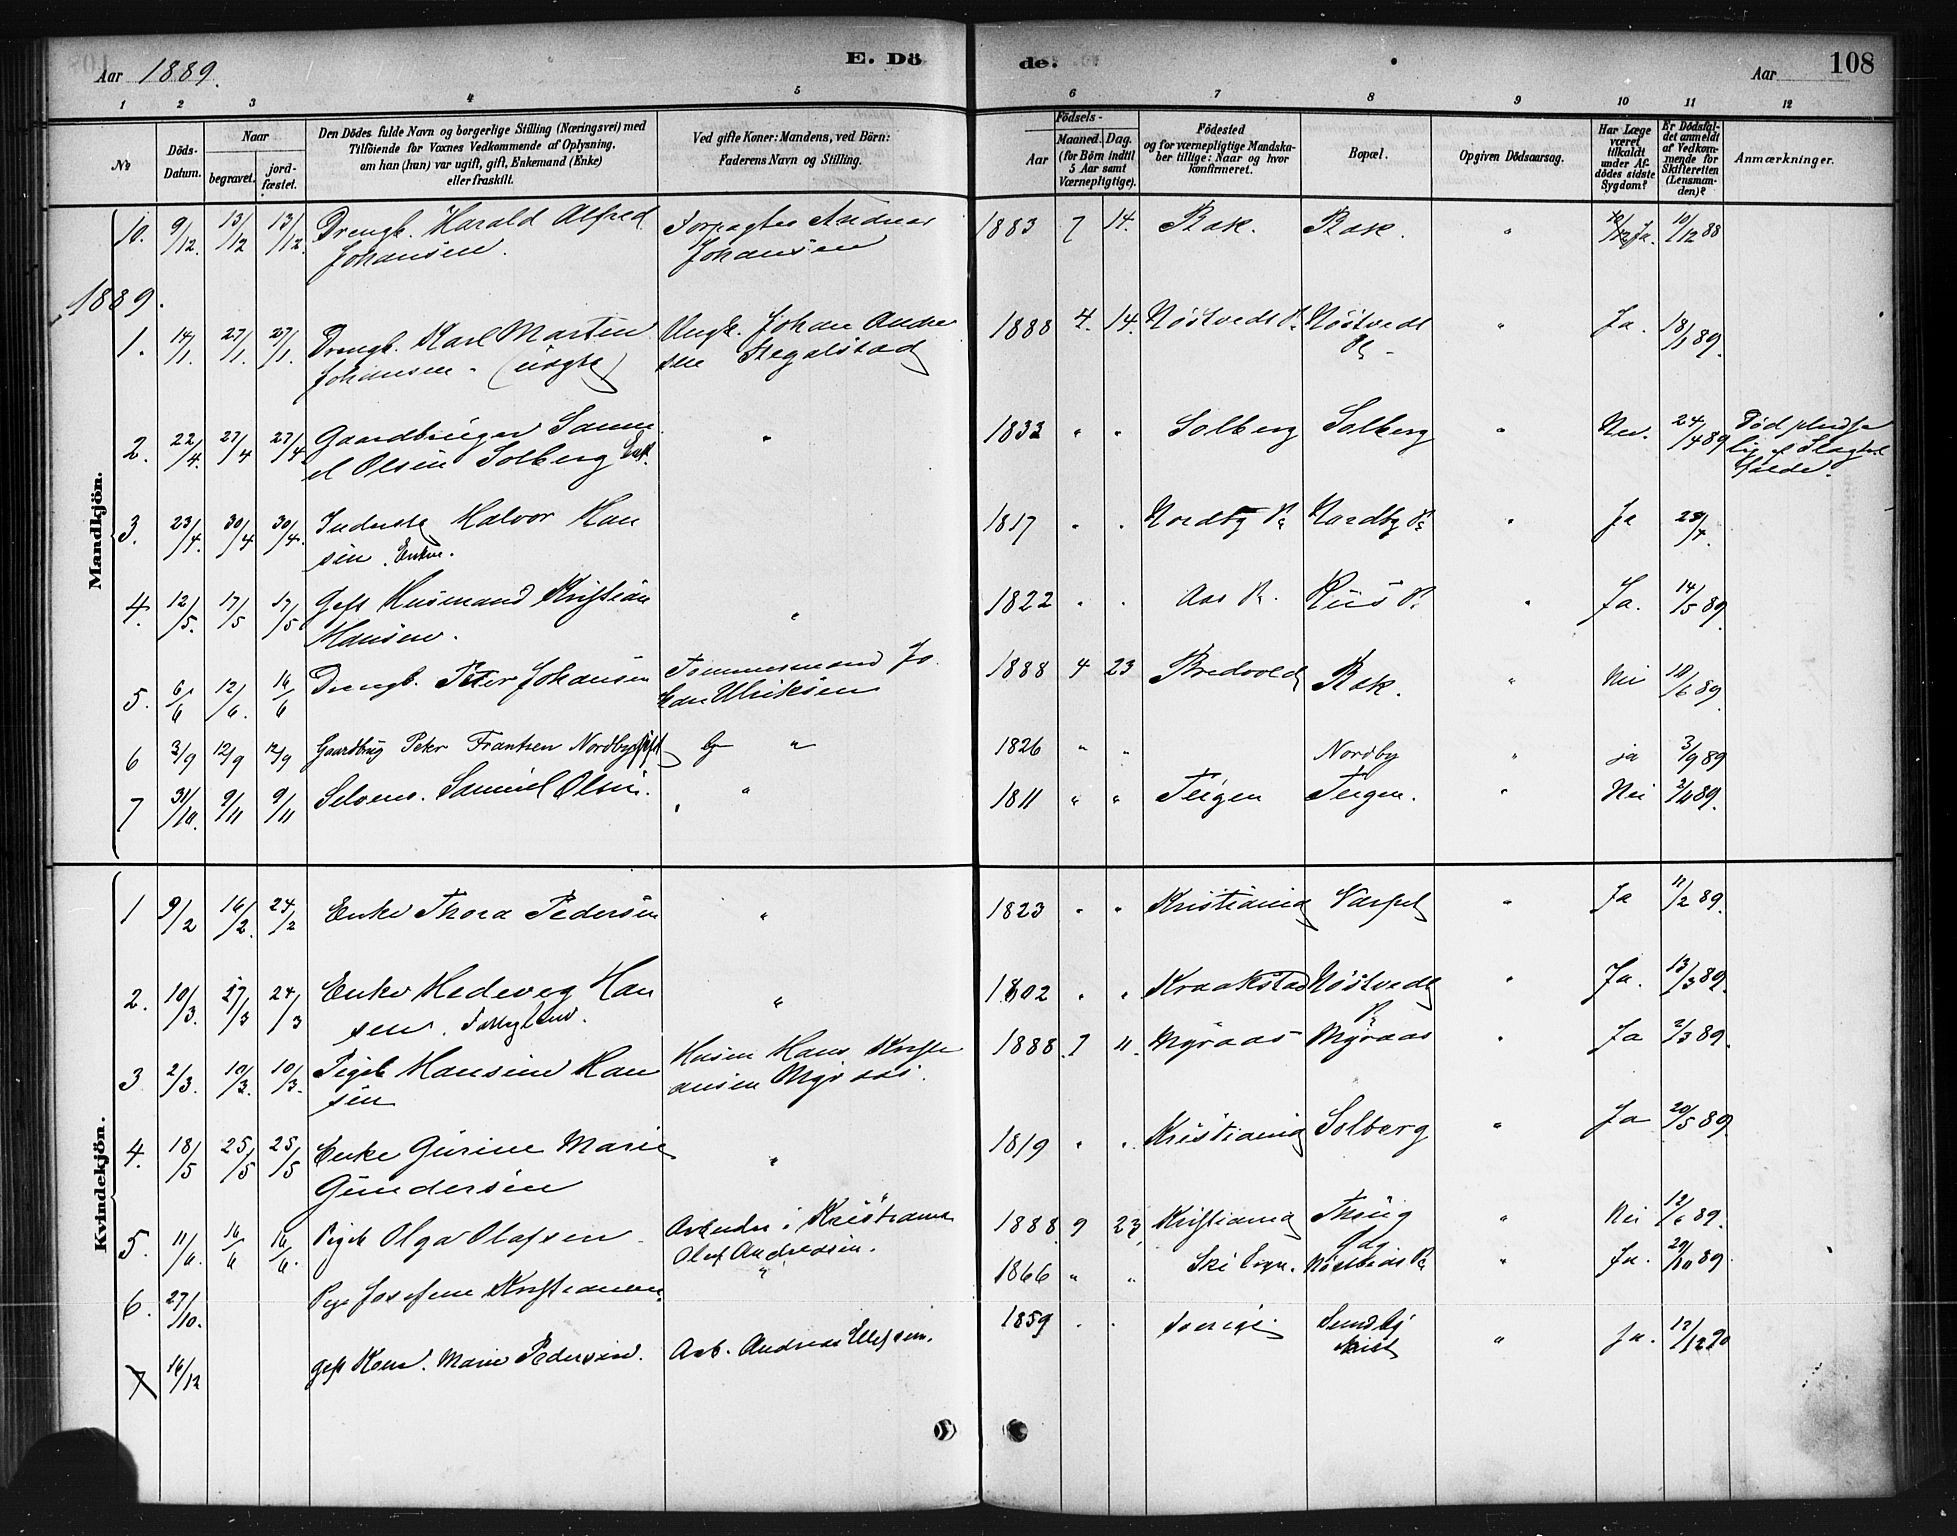 Aar 1889.
E. Dö
de.
Aar
108
1 2 3 4 5 6 7 8 9 10 11 12
No
Döds-Datum.
Naar
begravet.
jord-fæstet.
Den Dödes fulde Navn og borgerlige Stilling (Næringsvei) med
Tilföiende for Voxnes Vedkommende af Oplysning,
om han (hun) var ugift, gift, Enkemand (Enke)
eller fraskilt.
Ved gifte Koner: Mandens, ved Börn:
Faderens Navn og Stilling.
Födsels-
Aar
Maaned. Dag.
(for Börn indtil
5 Aar samt
Værnepligtige).
Födested
og for værnepligtige Mandska-
ber tillige: Naar og hvor
konfirmeret.
Bopæl.
Opgiven Dödsaarsag.
Har Læge
været
tilkaldt
under Af-
dödes sidste
Sygdom?
Er Dödsfal-
det anmeldt
af Vedkom-
mende for
Skifteretten
(Lensman-
den)?
Anmærkninger.
Mandkjön.
10. 9/12. 13/12 13/12. Drengb. Harald Alfred Forpagter Andreas 1883 7 14. Rak. Rak. " Ja. 10/12 88
Johansen. Johansen
1889.
1. 14/1. 27/1. 27/1. Drengb. Karl Martin Ungk. Johan Andre 1888 4. 14. Nöstvedt P. Nöstvedt " Ja. 18/1 89.
Johansen. (uægte) sen Stegalstad
2. 22/4. 27/4 27/4 Gaardbruger Samu " 1833 " " Solberg Solberg " Nei. 24/4 89
el Olsen Solberg Enk.
3. 23/4. 30/4 30/4. Inderst Halvor Han 1817 " " Nordby P. Nordby P. " Ja 29/4.
sen. Enkem.
4. 12/5. 17/5 17/5 Gift Husmand Kristian " 1822 " " Aas P. Riis P. " Ja. 14/5 89.
Hansen.
5. 6/6 12/6. 16/6 Drengb. Peter Johansen Tømmermand Jo 1888 4 23 Bredvold Rak. " Nei 10/6 89.
han Ulriksen
6 3/9 12/9 12/9 Gaardbrug Peter Frantsen Nordby gift " 1826 " " Nordby " ja 3/9 89
7 31/10. 9/11 9/11 Selveier. Samuel Olsen. " 1811 " " Teigen Teigen. " Nei 2/11 89.
Kvindekjön.
1 9/2 16/2. 24/2 Enke Thora Pedersen " 1823 " " Kristiania " Ja 11/2 89.
2. 10/3. 17/3 24/3 Enke Hedevig Han " 1802 " " Kraakstad Nöstvedt " Ja. 13/3 89.
sen.
3 2/3. 10/3. 10/3. Pigeb Hansine Han Husm Hans Kristi 1888. 7 11. Myraas Myraas " Ja 2/3 89.
sen ansen Myraas.
4. 18/5 25/5 25/5 Enke Gurine Marie " 1819 " " Kristiania Solberg " Ja 20/5 89.
Gundersen
5. 11/6. 16/6 16/6. Pigeb Olga Olafsen Arbeider i Kristiania 1888. 9 23. Kristiania " Nei 12/6 89.
Olaf Andreasen.
6. 27/10. Pige Josefine Kristiansen " 1866 " " Ski Sogn. Nöstvedt P. " Ja. 29/10 89
7 16/12 gift Kone. Marie Pedersen. Arb. Andreas Ellefsen. 1859 " " Sverige Sundby " Ja. 17/12 90
Krist